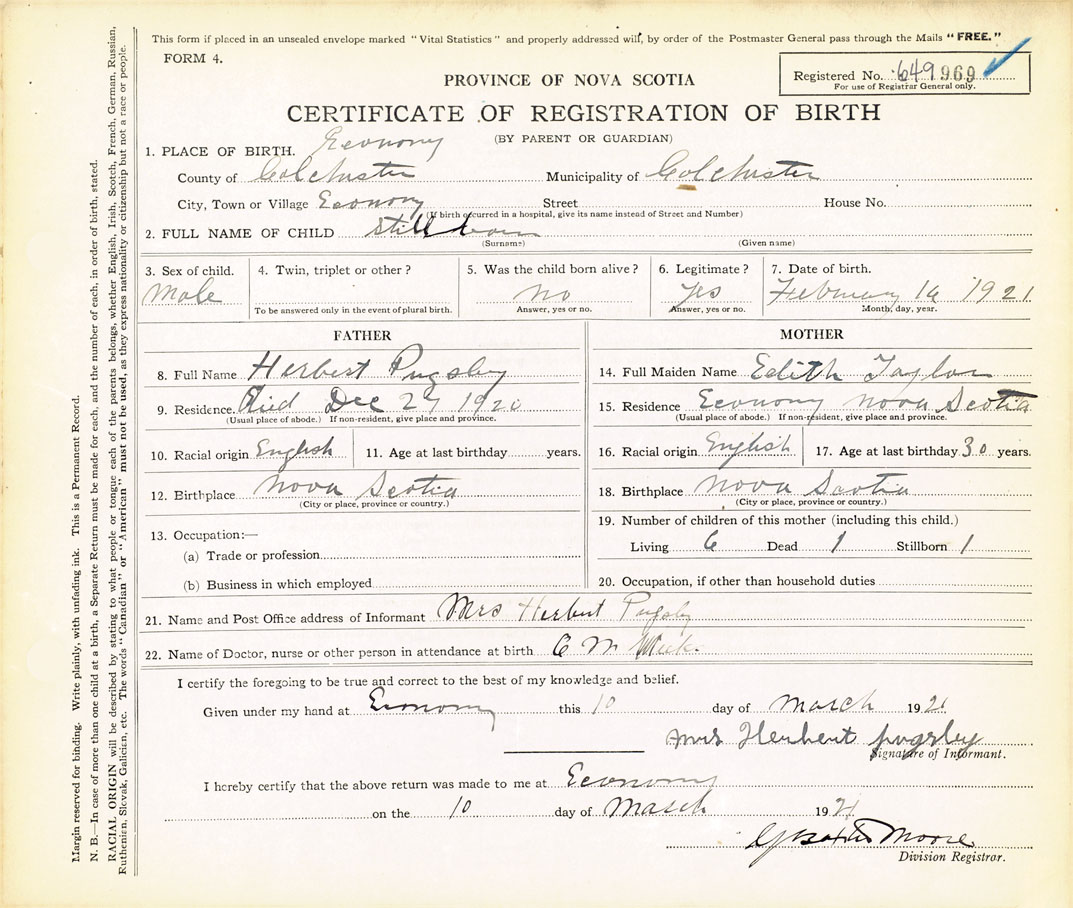 This form if placed in an unsealed envelope marked "Vital Statistics" and properly addressed will, by order of the Postmaster General pass through the Mails "FREE."
FORM 4.
Registered No. 649969
For use of Registrar General only.
PROVINCE OF NOVA SCOTIA
CERTIFICATE OF REGISTRATION OF BIRTH
(BY PARENT OR GUARDIAN)
1. PLACE OF BIRTH. Economy
County of Colchister Municipality of Colchister
City, Town or Village Economy Street House No.
(If birth occurred in a hospital, give its name instead of Street and Number)
2. FULL NAME OF CHILD Still born
(Surname) (Given name)
3. Sex of child. 4. Twin, triplet or other? 5. Was the child born alive? 6. Legitimate? 7. Date of birth.
Male no yes February 14 1921
To be answered only in the event of plural birth. Answer, yes or no. Answer, yes or no. Month, day, year.
FATHER
8. Full Name Herbert Pugsley
9. Residence. Died Dec 27 1920
(Usual place of abode.) If non-resident, give place and province.
10. Racial origin English 11. Age at last birthday years.
12. Birthplace Nova Scotia
(City or place, province or country.)
13. Occupation:—
(a) Trade or profession
(b) Business in which employed
MOTHER
14. Full Maiden Name Edith Taylor
15. Residence Economy Nova Scotia
(Usual place of abode.) If non-resident, give place and province.
16. Racial origin English 17. Age at last birthday 30 years.
18. Birthplace Nova Scotia
(City or place, province or country.)
19. Number of children of this mother (including this child.)
Living 6 Dead 1 Stillborn 1
20. Occupation, if other than household duties
21. Name and Post Office address of Informant Mrs Herbert Pugsley
22. Name of Doctor, nurse or other person in attendance at birth C M
I certify the foregoing to be true and correct to the best of my knowledge and belief.
Given under my hand at Economy this 10 day of March 1921
Mrs Herbert pugsley
Signature of Informant.
I hereby certify that the above return was made to me at Economy
on the 10 day of March 1921
Moore
Division Registrar.
Margin reserved for binding. Write plainly, with unfading ink. This is a Permanent Record.
N. B.—In case of more than one child at a birth, a Separate Return must be made for each, and the number of each, in order of birth, stated.
RACIAL ORIGIN will be described by stating to what people or tongue each of the parents belongs, whether English, Irish, Scotch, French, German, Russian,
Ruthenian, Slovak, Galician, etc. The words "Canadian" or "American" must not be used, as they express nationality or citizenship but not a race or people.